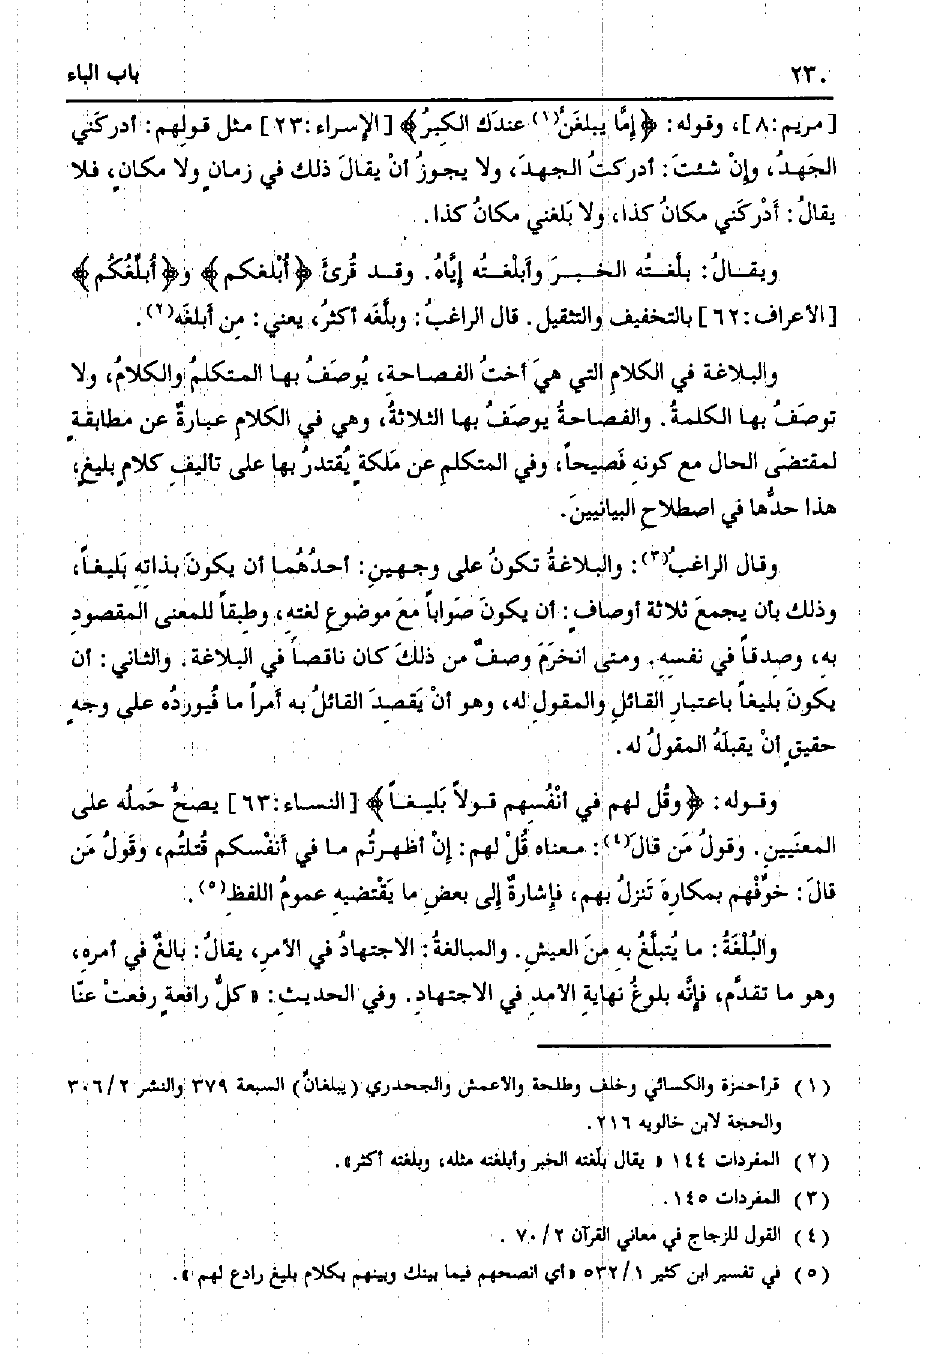 ٢٣٠
باب الباء
[ مريم : ٨ ]، وقوله : ﴿ إمَّا يبلغَنَّ(١) عندَك الكِبَرُ ﴾ [ الإسراء : ٢٣ ] مثل قولهم : أدركَني
الجَهدُ ، وإنْ شئتَ : أدركتُ الجهدَ ، ولا يجوزُ أنْ يقالَ ذلك في زمانٍ ولا مكانٍ ، فلا
يقالُ : أَدْركَني مكانُ كذا ، ولا بَلغني مكانُ كذا .
ويقــالُ : بلَّغتُه الخبـرَ وأبلغتُه إيَّاهُ . وقـد قُرئَ ﴿ أُبْلغكم ﴾ و﴿ أُبلِّغُكُم ﴾
[ الأعراف : ٦٢ ] بالتخفيف والتثقيل . قال الراغبُ : وبلَّغَه أكثرُ ، يعني : مِن أَبلغَه(٢) .
والبلاغة في الكلامِ التي هيَ أختُ الفصاحة ، يُوصَفُ بها المتكلمُ والكلامُ ، ولا
توصَفُ بها الكلمةُ . والفصاحةُ يوصَفُ بها الثلاثةُ ، وهي في الكلامِ عبارةٌ عن مطابقةٍ
لمقتضَى الحال مع كونهِ فَصيحاً ، وفي المتكلمِ عن مَلكةٍ يُقتدرُ بها على تأليفِ كلامٍ بليغٍ ،
هذا حدُّها في اصطلاحِ البيانيينَ .
وقال الراغبُ(٣) : والبلاغةُ تكونُ على وجهينِ : أحدُهُما أن يكونَ بذاتهِ بَليغاً ،
وذلك بأن يجمعَ ثلاثة أوصافٍ : أن يكونَ صَواباً معَ موضوعِ لغتهِ ، وطبقاً للمعنى المقصودِ
بهِ ، وصدقاً في نفسهِ . ومتى انخرَمَ وصفٌ من ذلكَ كان ناقصاً في البلاغة . والثاني : أن
يكونَ بليغاً باعتبارِ القائلِ والمقولِ له ، وهو أنْ يَقصِدَ القائلُ به أمراً ما فُيوردُه على وجهٍ
حقيقٍ أنْ يقبلَهُ المقولُ له .
وقـوله : ﴿ وقُل لهم في أنْفُسِهم قـولاً بَليغـاً ﴾ [ النساء : ٦٣ ] يصحُّ حَملُه على
المعنَيينِ . وقولُ مَن قالَ(٤) : معناه قُلْ لهم : إنْ أظهرتُم ما في أنفْسكم قُتلتُم ، وقَولُ مَن
قالَ : خوِّفْهم بمكارهَ تَنزلُ بهم ، فإشارةٌ إلى بعضِ ما يَقْتضيهِ عمومُ اللفظِ(٥) .
والبُلْغَةُ : ما يُتبلَّغُ به منَ العيشِ . والمبالغةُ : الاجتهادُ في الأمرِ ، يقالُ : بالغٌ في أمره ،
وهو ما تقدَّم ، فإنَّه بلوغُ نهايةِ الأمدِ في الاجتهادِ . وفي الحديث : « كلُّ رافعةٍ رفعتْ عنّا
(١) قرأحمزة والكسائي وخلف وطلحة والأعمش والجحدري ( يبلغانِّ ) السبعة ٣٧٩ والنشر ٢ / ٣٠٦
والحجة لابن خالويه ٢١٦ .
(٢) المفردات ١٤٤ « يقال بلّغته الخبر وأبلغته مثله ، وبلغته أكثر » .
(٣) المفردات ١٤٥ .
(٤) القول للزجاج في معاني القرآن ٢ / ٧٠ .
(٥) في تفسير ابن كثير ١ / ٥٣٢ « أي انصحهم فيما بينك وبينهم بكلام بليغ رادع لهم » .